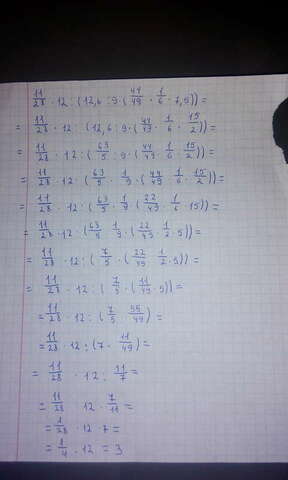 11/28 · 12 : (12,6 : 9 · (44/49 · 1/6 · 7,5)) =
= 11/28 · 12 : (12,6 : 9 · (44/49 · 1/6 · 15/2)) =
= 11/28 · 12 : (63/5 : 9 · (44/49 · 1/6 · 15/2)) =
= 11/28 · 12 · (63/5 · 1/9 · (44/49 · 1/6 · 15/2)) =
= 11/28 · 12 · (63/5 · 1/9 · (22/49 · 1/6 · 15)) =
= 11/28 · 12 · (63/5 · 1/9 · (22/49 · 1/2 · 5)) =
= 11/28 · 12 : (7/5 · (22/49 · 1/2 · 5)) =
= 11/28 · 12 : (7/5 · (11/49 · 5)) =
= 11/28 · 12 : (7/5 · 55/49) =
= 11/28 · 12 : (7 · 11/49) =
= 11/28 · 12 : 11/7 =
= 11/28 · 12 · 7/11 =
= 1/28 · 12 · 7 =
= 1/4 · 12 = 3